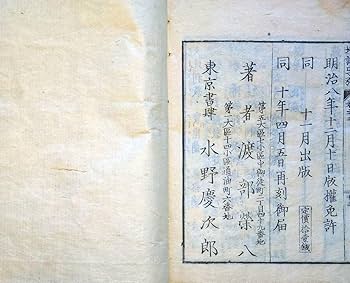 明治八年十二月十日版權免許
同　十二月出版
定價拾壹錢
同　十年四月五日再刻御届
第五大區十小區中御徒町二丁目四十九番地
著者　渡部栄八
第一大區十四小區通油町六番地
東京書肆　水野慶次郎